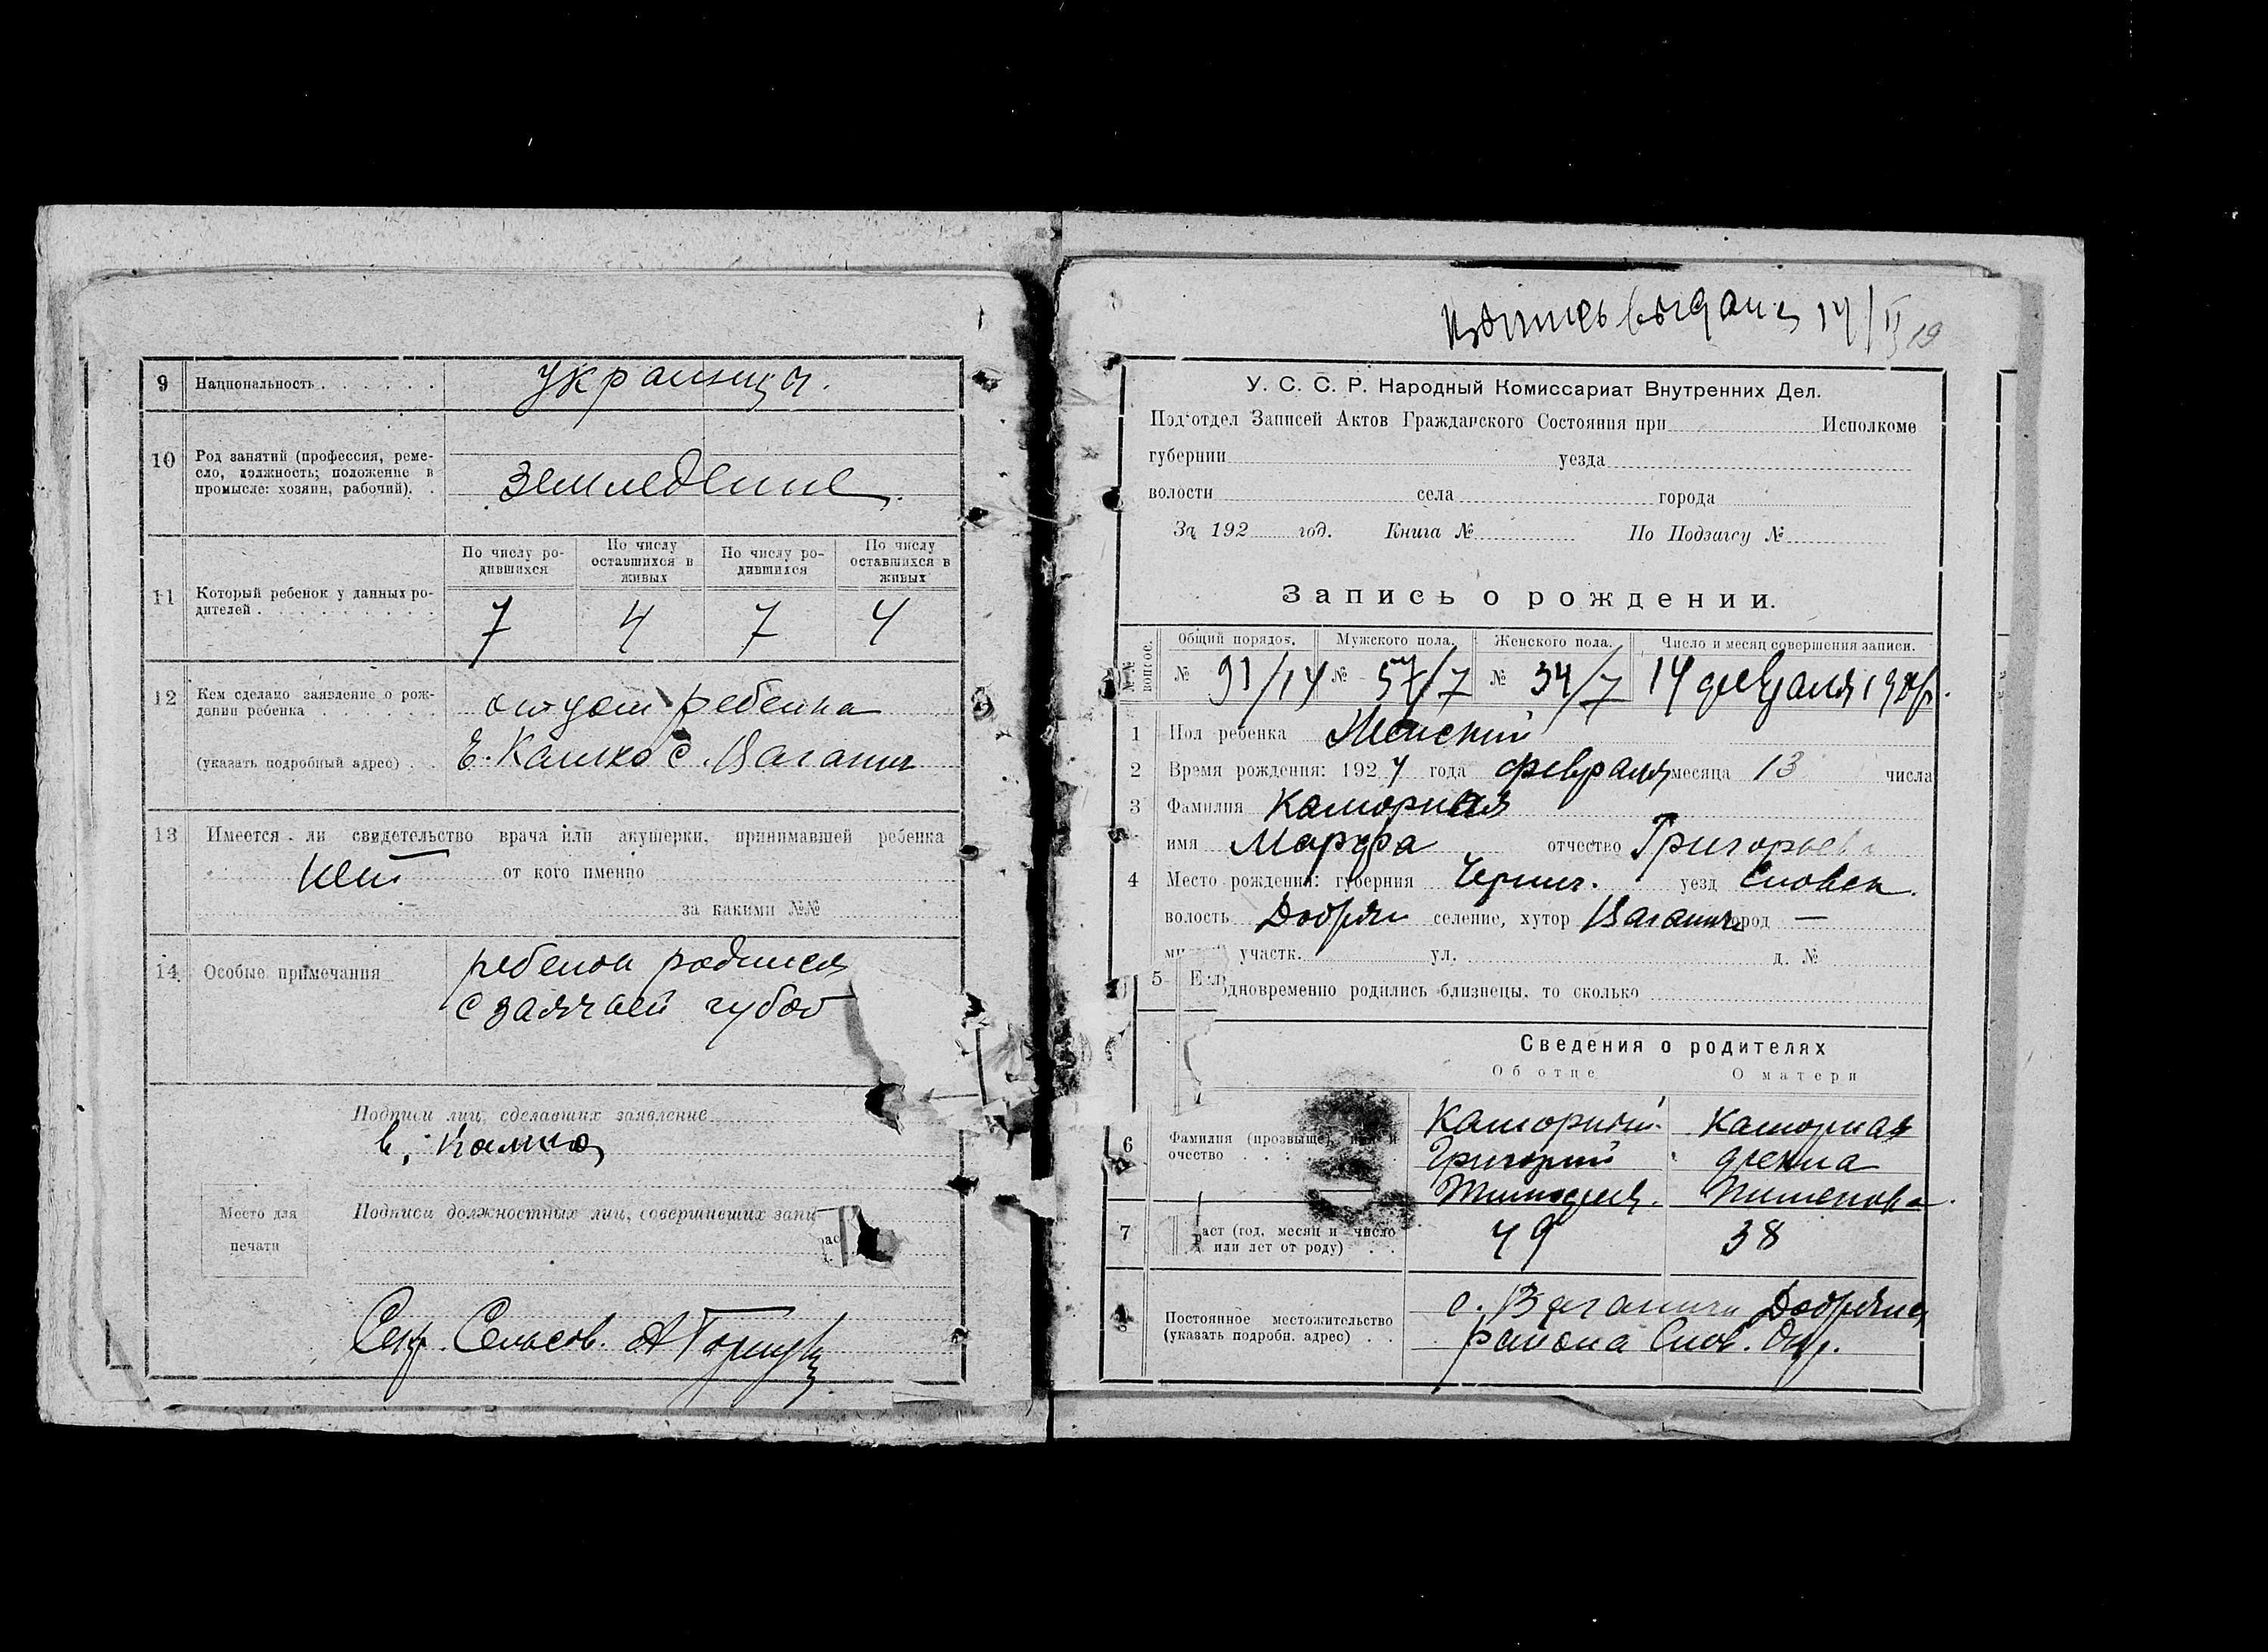 9 Национальность . . . . . . украинцы.
10 Род занятий (профессия, реме-
сло, должность; положение в
промысле: хозяин, рабочий). . земледелие.
11 Который ребенок у данных ро-
дителей . . . . . . . . . .
По числу ро-
дившихся
По числу
оставшихся в
живых
По числу ро-
дившихся
По числу
оставшихся в
живых
7 4 7 4
12 Кем сделано заявление о рож-
дении ребенка . . . . . . отцом ребенка
(указать подробный адрес) . . с. Ваганич
13 Имеется ли свидетельство врача или акушерки, принимавшей ребенка
нет от кого именно
за какими №№
14 Особые примечания ребенок родился
с заячьей губой
Подписи лиц, сделавших заявление
Место для
печати
Подписи должностных лиц, совершивших запи
Сек. Сельсов.
выдана 14/II
У. С. С. Р. Народный Комиссариат Внутренних Дел.
Под'отдел Записей Актов Гражданского Состояния при Исполкоме
губернии уезда
волости села города
За 192 год. Книга № По Подзагсу №
Запись о рождении.
Общий порядок. Мужского пола. Женского пола. Число и месяц совершения записи.
№ 91/14 № 57/7 № 34/7 14 февраля
1 Пол ребенка Женский
2 Время рождения: 1924 года февраля месяца 13 числа
3 Фамилия Каморная
имя Марфа отчество Григорьев
4 Место рождения: губерния Черниг. уезд Сновск.
волость Добрян селение, хутор Ваганичи город —
участк. ул. д. №
5 Если одновременно родились близнецы, то сколько
Сведения о родителях
Об отце О матери
6 Фамилия (прозвище), имя и
очество . . . .
Каморный Каморная
Григорий
Тимофеев. Пименовна.
7 раст (год, месяц и число
или лет от роду) . . 49 38
8 Постоянное местожительство
(указать подробн. адрес) . .
с. Ваганичи Добрянск
районаСнов. Окр.